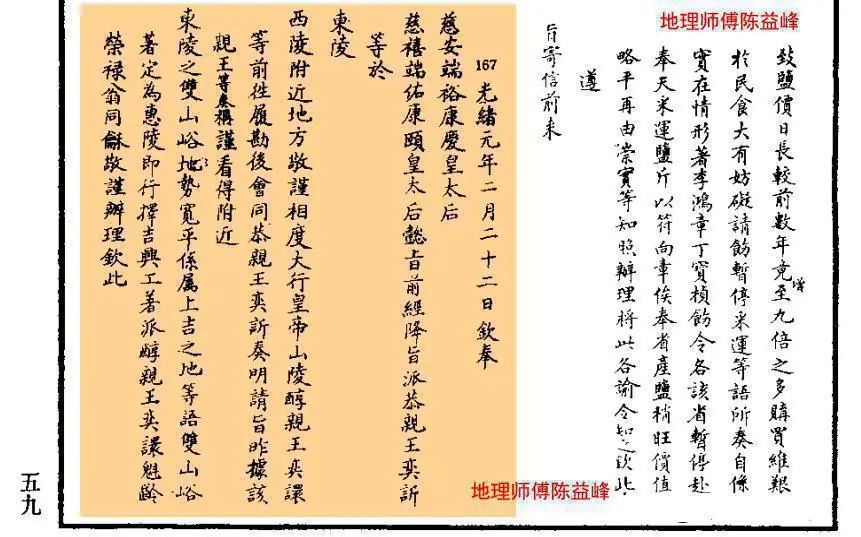 地理师傅陈益峰
致鹽價日長較前數年竟增至九倍之多購買維艱
於民食大有妨礙請飭暫停采運等語所奏自係
實在情形著李鴻章丁寶楨飭令各該省暫停赴
奉天采運鹽斤以符向章俟奉省產鹽稍旺價值
略平再由崇實等知照辦理將此各諭令知之欽此
遵
旨寄信前來
167 光緒元年二月二十二日欽奉
慈安端裕康慶皇太后
慈禧端佑康頤皇太后懿旨前經降旨派恭親王奕訢
等於
東陵
西陵附近地方敬謹相度大行皇帝山陵醇親王奕譞
等前往履勘後會同恭親王奕訢奏明請旨昨據該
親王等奏稱謹看得附近
東陵之雙山峪地勢寬平係屬上吉之地等語雙山峪
著定為惠陵即行擇吉興工著派醇親王奕譞魁齡
榮祿翁同龢敬謹辦理欽此
地理师傅陈益峰
五九